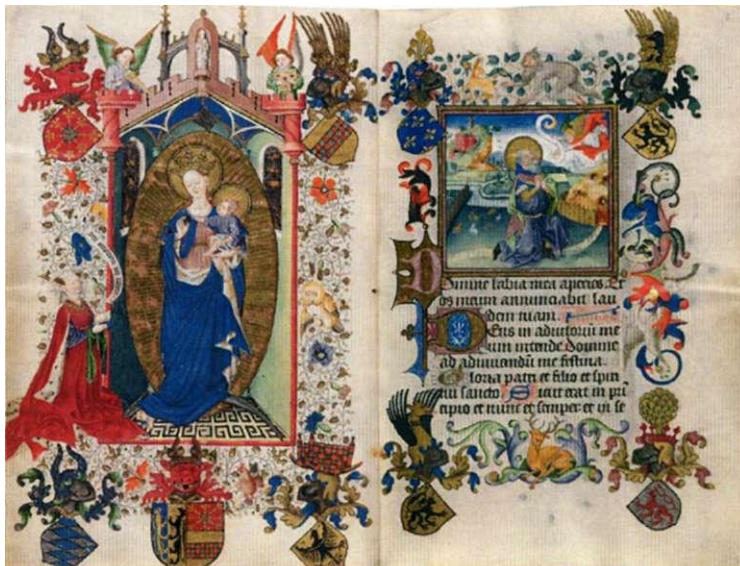 Domine labia mea aperies. Et
os meum annunciabit lau
dem tuam.
Deus in adiutoriū me
um intende Domine
ad adiuuandū me festina.
Gloria patri et filio et spiri
tui sancto Sicut erat in pri
cipio et nunc et semper et in se